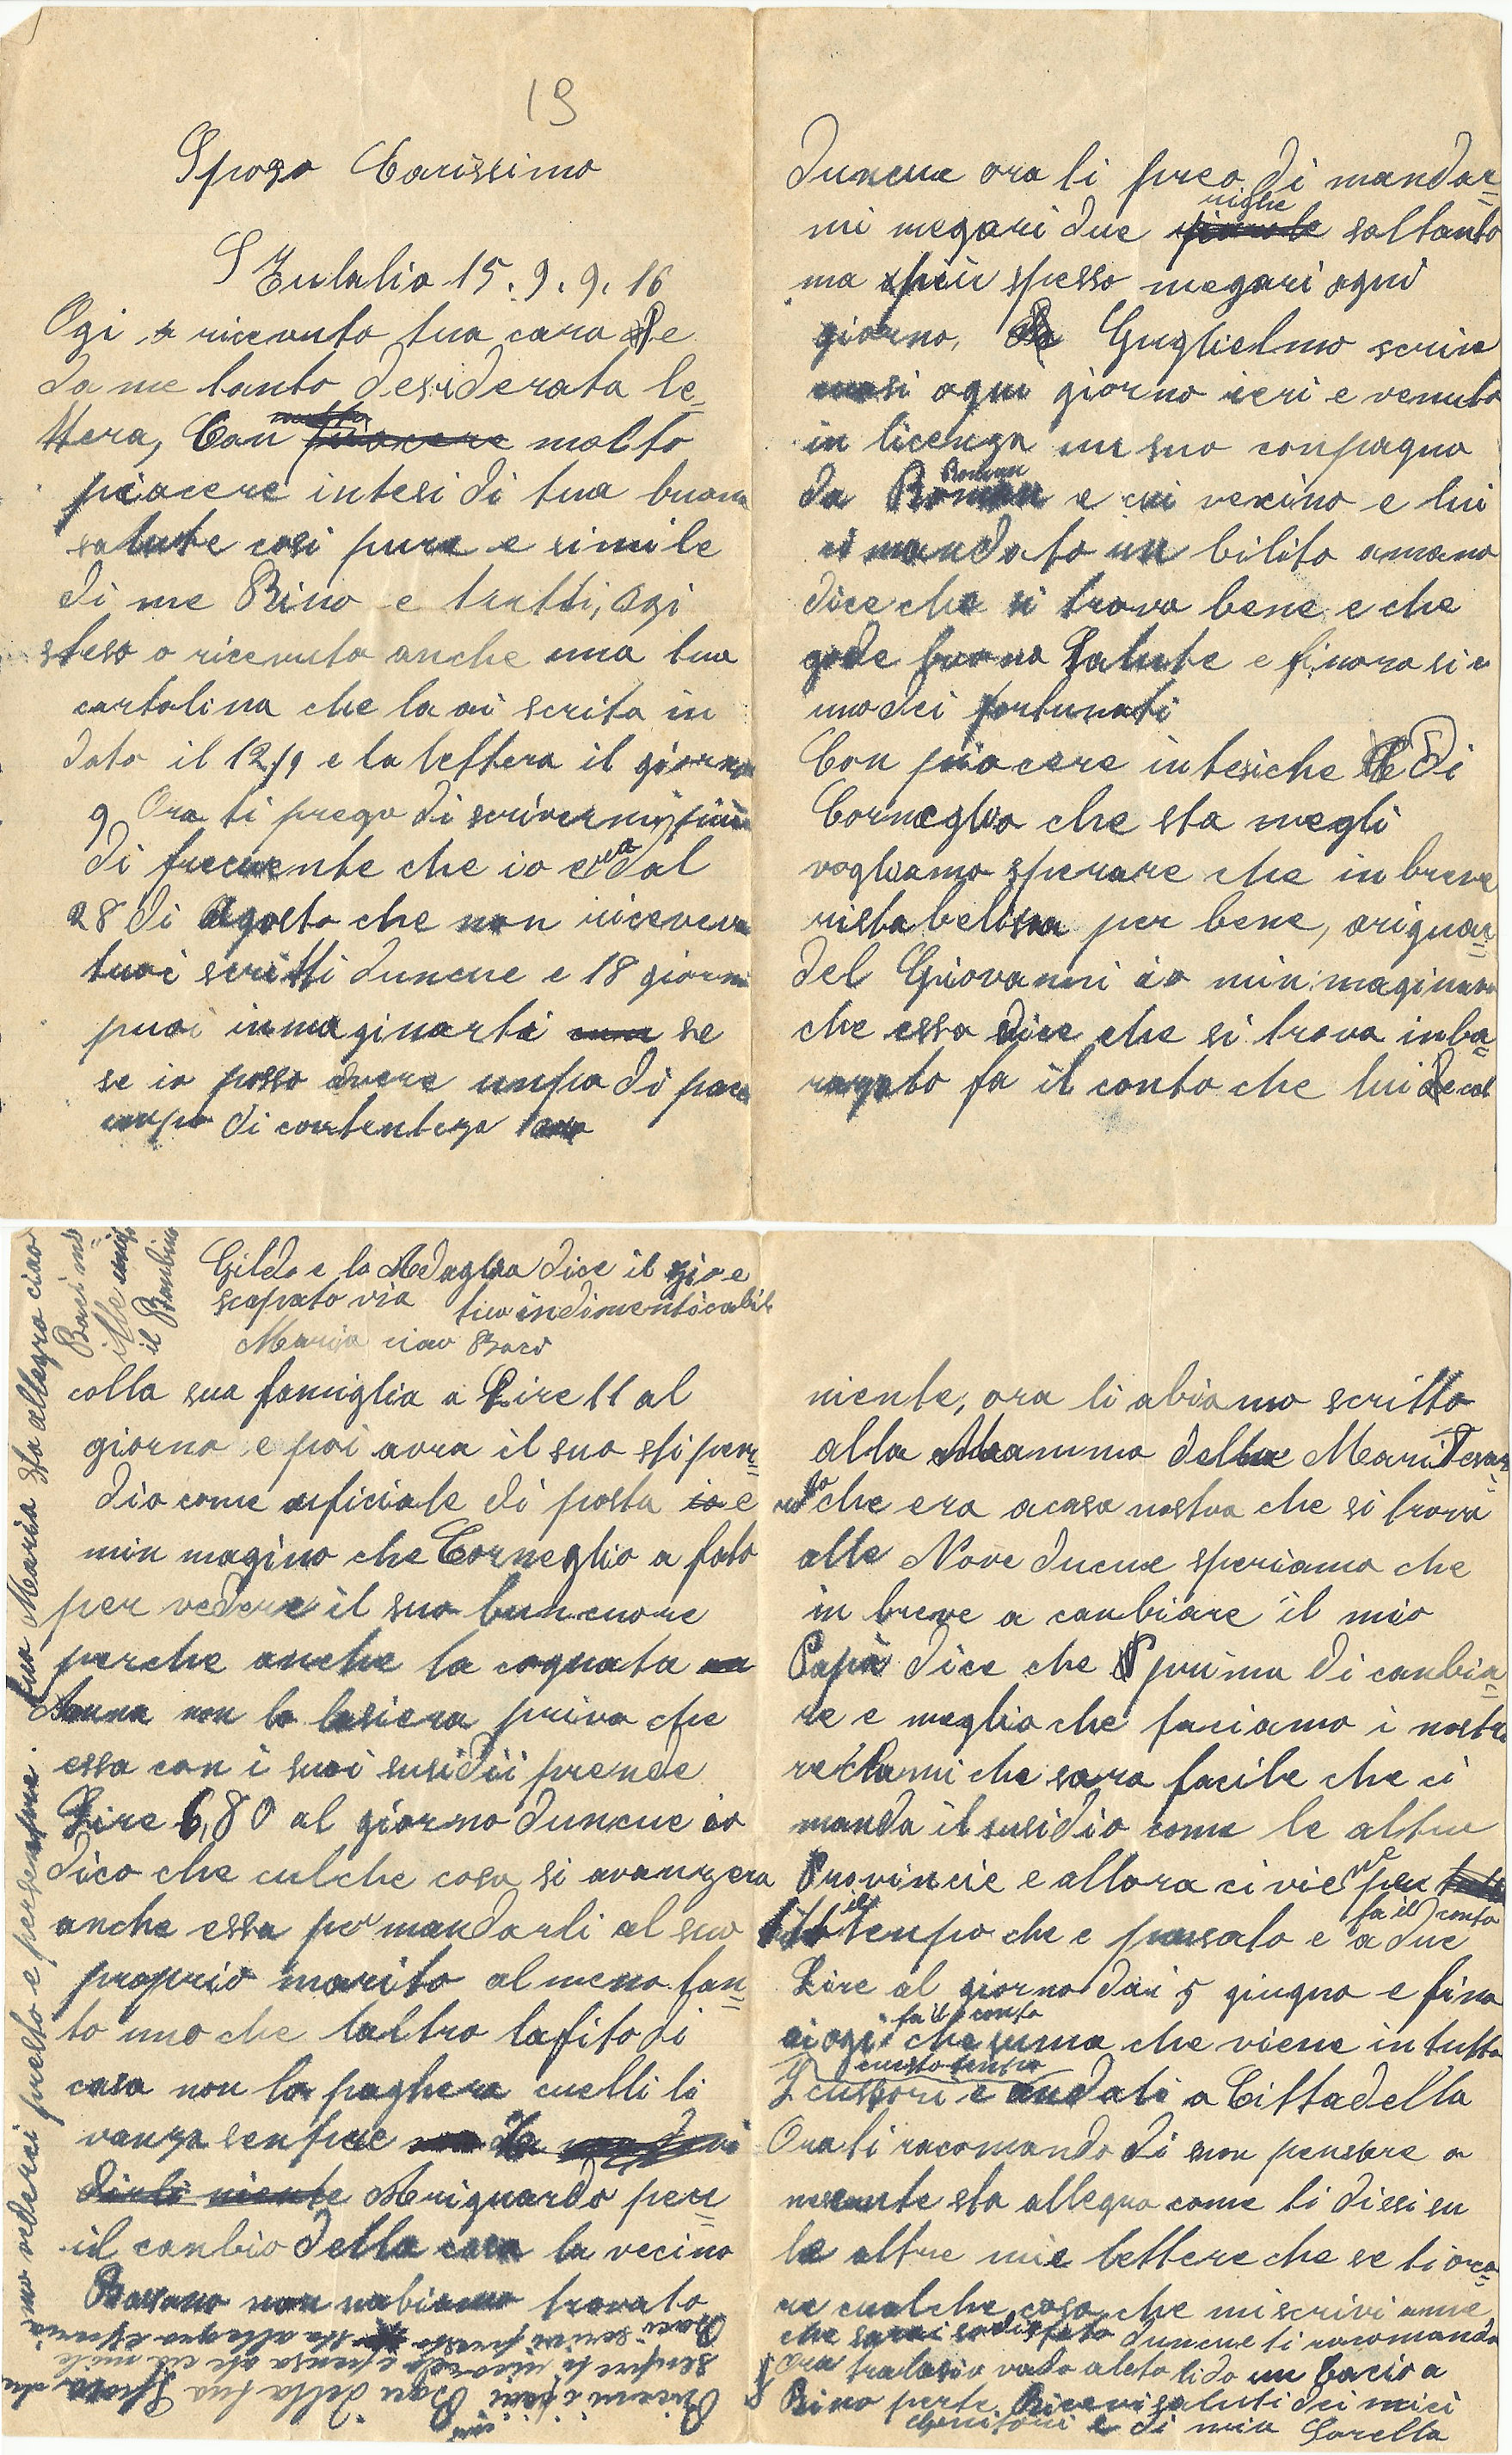 19
Sposo Carissimo
S Eulalia 15.9.9.16
Ogi o ricevuto tua cara e
da me tanto desiderata le=
ttera, Con molto
piacere intesi di tua buona
salute cosi pure e simile
di me Rino e tutti, ogi
steso o ricevuto anche una tua
cartolina che la ai scrita in
data il 12/9 e la lettera il giorno
9 Ora ti prego di scrivermi piu
di frecuente che io era dal
28 di Agosto che non riceveva
tuoi scritti duncue e 18 giorni
puoi inmaginarti se
se io posso avere unpo di pace
unpo di contenteza
duncue ora ti preo di mandar=
mi megari due righe soltanto
ma piu spesso megari ogni
giorno, Guglielmo scrive
cuasi ogni giorno ieri e venuto
in licenza un suo conpagno
da Roman e cui vecino e lui
ci mandato un bilito amano
dice che si trova bene e che
gode buona Salute e finora si e
uno dei fortunati
Con piacere intesi che di
Corneglio che sta megli
vogliamo sperare che in breve
ristabelisa per bene, ariguar=
del Giovanni io min maginava
che esso dice che si trova inba=
razato fa il conto che lui e col
Gildo e la Adaglia dice il zio e
scapato via tuo indimenticabile
Maria ciao Baci
Baci mi=
ille unito
il Banbino
colla sua famiglia a Lire 11 al
giorno e poi avra il suo stipen=
dio come uficiale di posta e
min magino che Corneglio a fato
per vedere il suo buncuore
perche anche la cognata
Anna non lo lasiera privo che
essa con i suoi susidii prende
Lire 6,80 al giorno duncue io
dico che culche cosa si avanzera
anche essa per mandarli al suo
proprio marito almeno fan=
to uno che laltro lafito di
casa non la paghera cuelli li
vanza senpre
Ariguardo per=
il canbio della casa la vecino
Bassano non nabiamo trovato
niente, ora li abiamo scritto
alla Mamma della Mari Tesar=
che era acasa nostra che si trova
alle Nove ducue speriamo che
in breve a canbiare il mio
Papà dice che prima di canbia=
re e meglio che faciamo i nostri
reclami che sara facile che ci
manda il susidio come le altre
Provincie e allora ci viene per
tuto il tenpo che e pasato e fa il conto a due
Lire al giorno dai 5 giugno e fino
ai ogi fa il conto che suma che viene in tutto
cuesto tenpo
I cursori e andati a Cittadella
Ora ti racomando di non pensare a
niente sta allegro come ti dissi su
le altre mie lettere che se ti oco=
re cualche cosa che mi scrivi ame
che sarai sodisfato duncue ti racomando
Ora tralasio vado aleto lido un bacio a
Rino perte Ricevi saluti dei miei
Genitori e di mia Sorella
Ricevi i piu Baci della tua Sposa che
senpre ti ricorda e pensa ate cu mile
Baci scrivi presto sta allegro e speria
mo vederci presto e persenpre. tua Maria sta allegro ciao